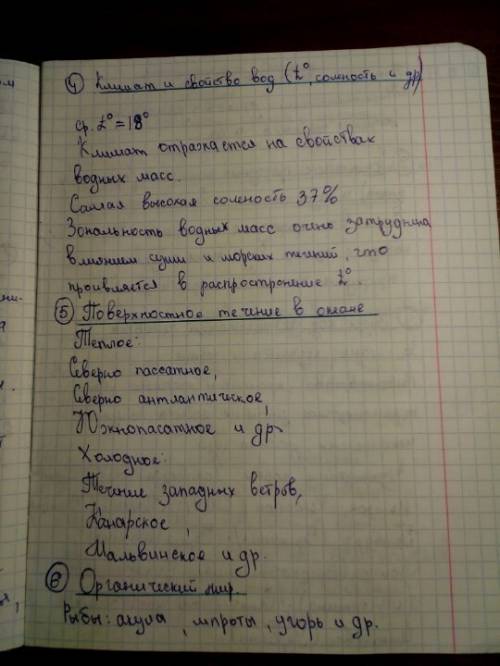 ④ Климат и свойство вод (t°, солность и др)
ср. t° = 18°
Климат отражается на свойствах
водных масс.
Самая высокая солность 37%
Зональность водных масс очень затруднина
влиянием суши и морских течений, что
проивляется в распростронение t°.
⑤ Поверхностное течение в океане
Теплое:
Северно пассатное,
Северно антлантическое,
Южнопасатное и др.
Холодное:
Течение западных ветров,
Канарское,
Мальвинское и др.
⑥ Органический мир.
Рыбы: акула, шпроты, угорь и др.